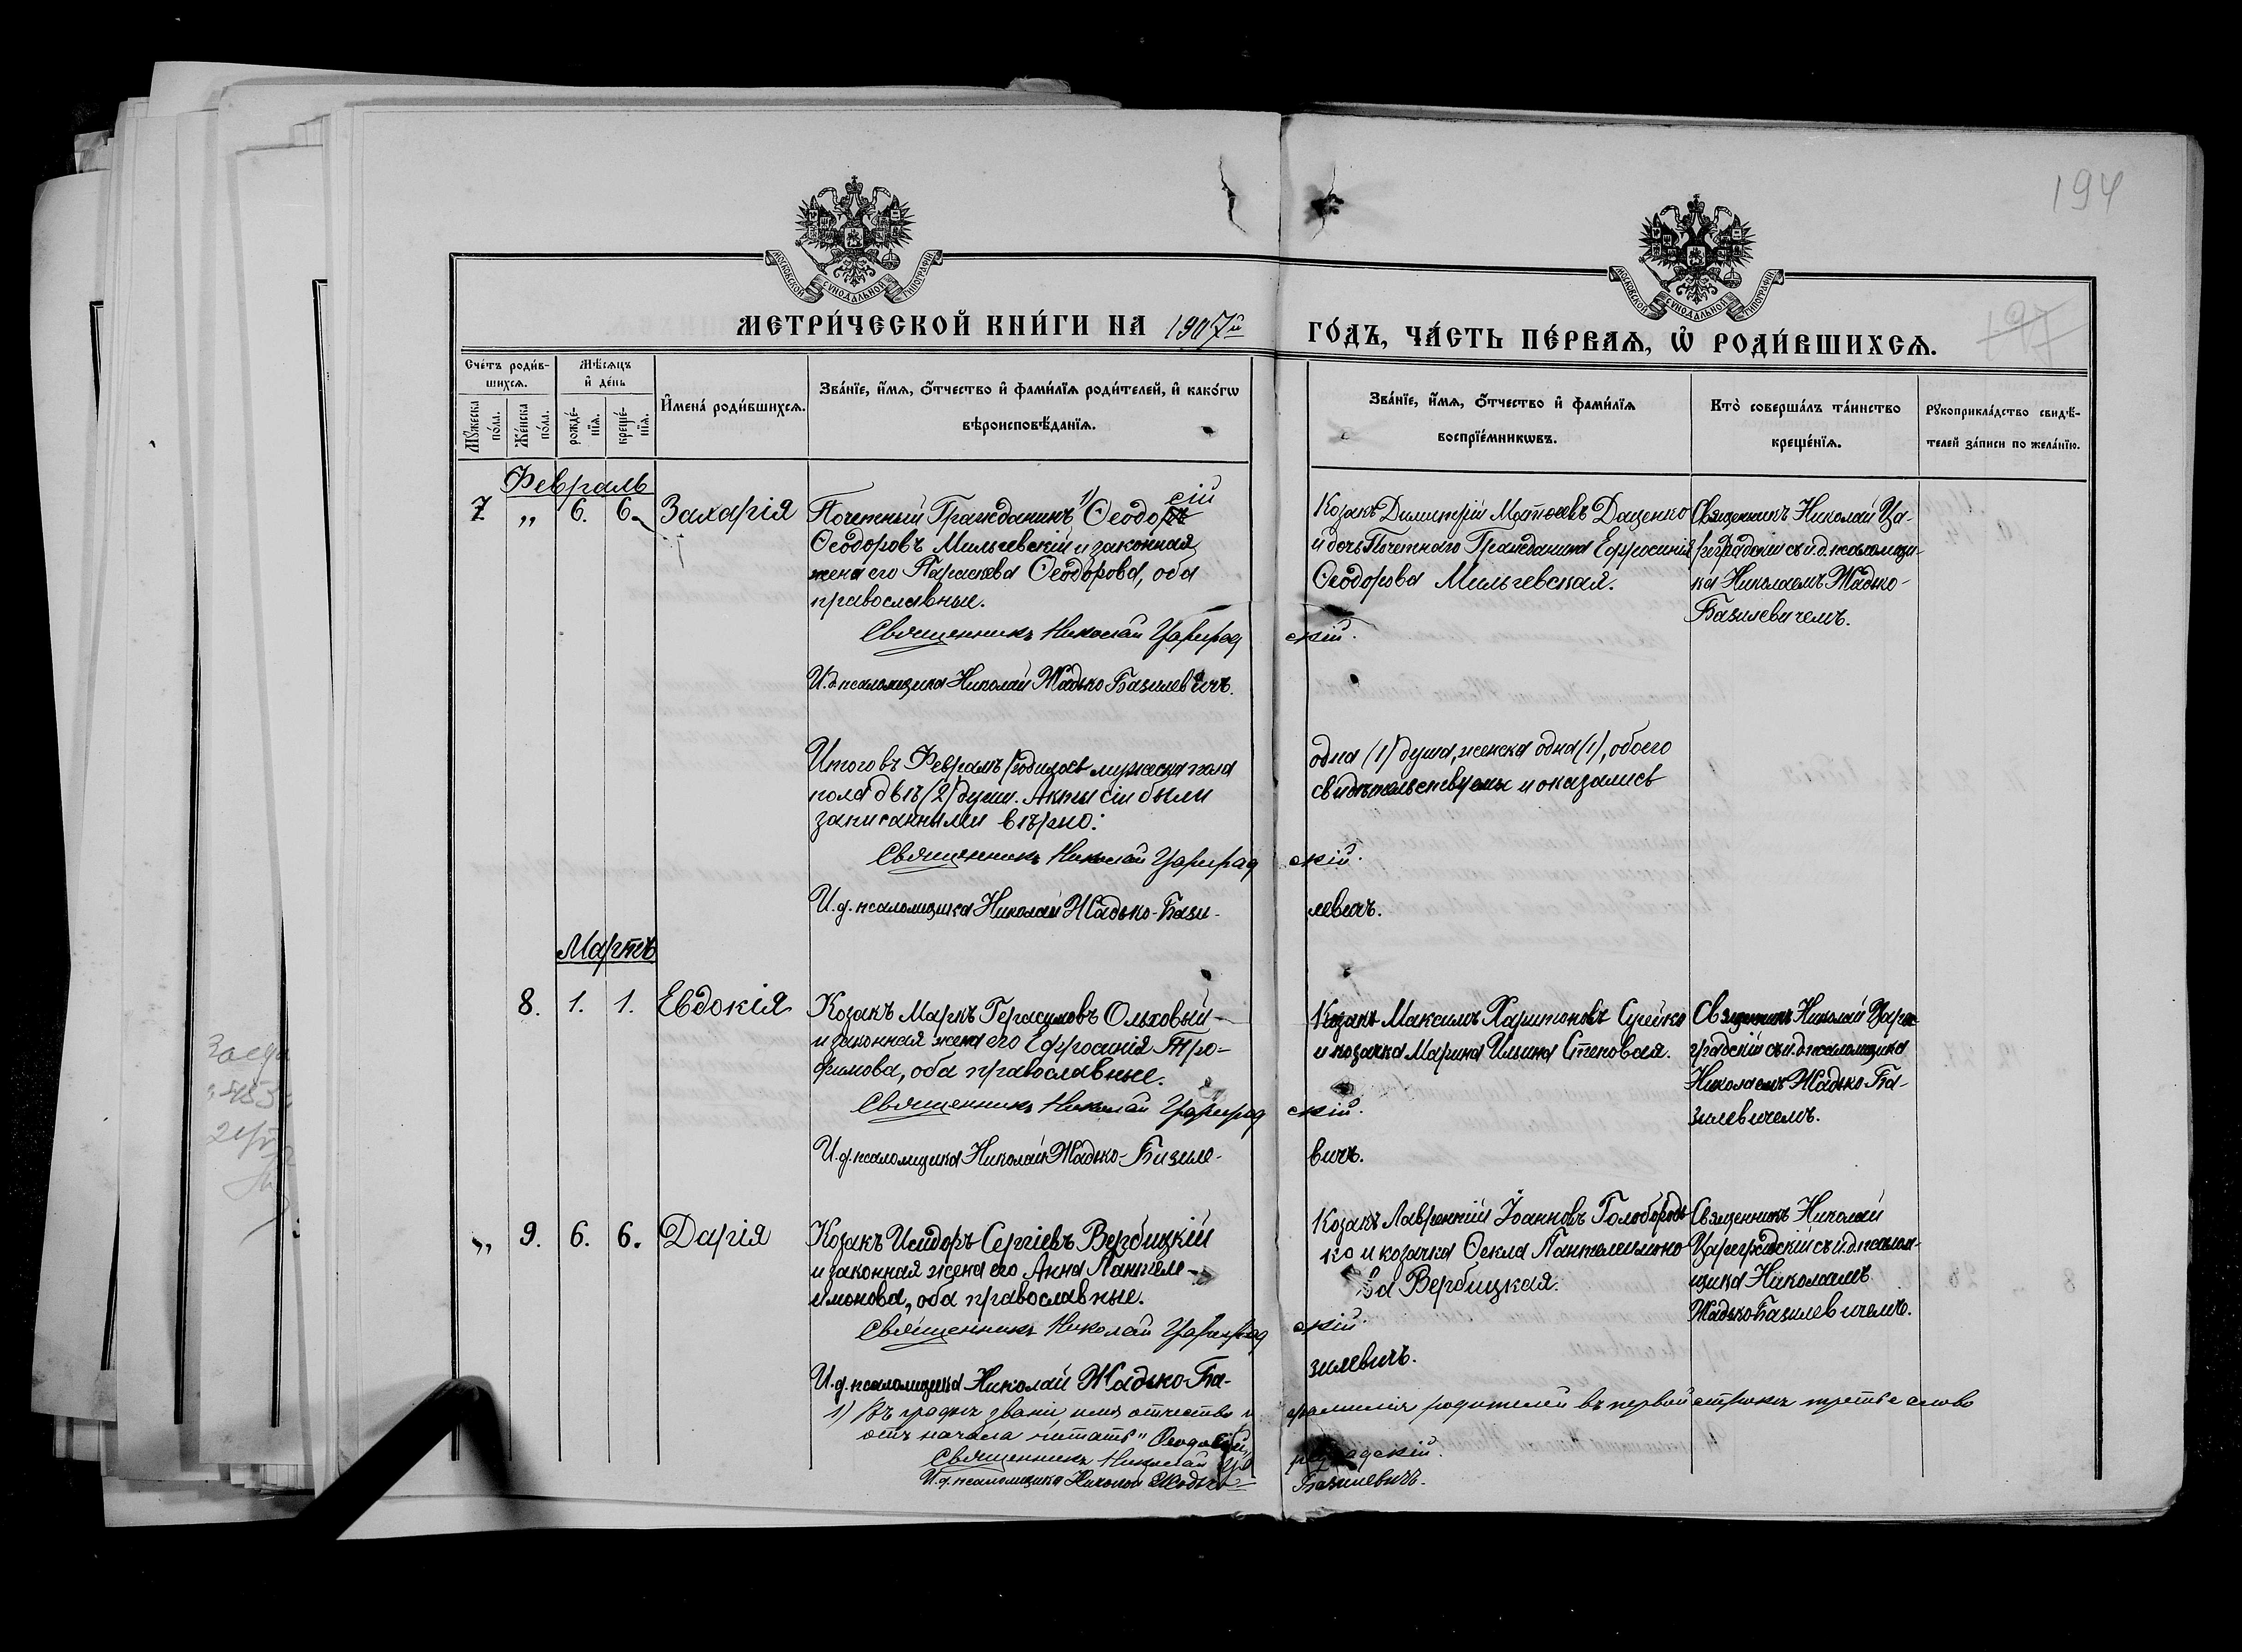 194
МОСКОВСКОЙ СѴНОДАЛЬНОЙ ТИПОГРАФІИ
МОСКОВСКОЙ СѴНОДАЛЬНОЙ ТИПОГРАФІИ
МЕТРИ́ЧЕСКОЙ КНИ́ГИ НА 1907й
ГО́ДЪ, ЧА́СТЬ ПЕ́РВАѦ, Ѡ҆ РОДИ́ВШИХСѦ.
197
Сче́тъ роди́в-
шихсѧ.
Мѣ́сѧцъ
и҆ де́нь
Мꙋ́жеска
по́ла.
Же́нска
по́ла.
рожде́-
нїѧ.
креще́-
нїѧ.
И҆мена̀ роди́вшихсѧ.
Зва́нїе, и҆́мѧ, ѻ҆́тчество и҆ фами́лїѧ роди́телей, и҆ како́гѡ
вѣроисповѣ́данїѧ.
Зва́нїе, и҆́мѧ, ѻ҆́тчество и҆ фами́лїѧ
воспрїе́мникѡвъ.
Кто̀ соверша́лъ та́инство
креще́нїѧ.
Рꙋкоприкла́дство свидѣ́-
телей за́писи по жела́нїю.
Февраль
7 „ 6. 6. Захарія
Почетный Гражданинъ 1) Ѳеодосій
Ѳеодоровъ Мильчевскій и законная
жена его Параскева Ѳеодорова, оба
православные.
Козакъ Димитрій Матѳеевъ Даценко
и дочь Почетнаго Гражданина Ефросинія
Ѳеодорова Мильчевская.
Священникъ Николай Ца-
реградскій съ и.д. псаломщи-
ка Николаемъ Жадько-
Базилевичемъ.
Священникъ Николай Цареградскій.
И.д. псаломщика Николай Жадько Базилевичъ.
Итого въ Февралѣ родилось мужеска пола одна (1) душа, женска одна (1), обоего
пола двѣ (2) души. Акты сіи были свидѣтельствуемы и оказались
записанными вѣрно:
Священникъ Николай Цареградскій.
И.д. псаломщика Николай Жадько-Базилевичъ.
Мартъ
8. 1. 1. Евдокія
Козакъ Маркъ Герасимовъ Ольховый
и законная жена его Ефросинія Тро-
фимова, оба православные.
Козакъ Максимъ Харитоновъ Сулейко
и козачка Марина Ильина Степовая.
Священникъ Николай Царе-
градскій съ и.д. псаломщика
Николаемъ Жадько Ба-
зилевичемъ.
Священникъ Николай Цареградскій.
И.д. псаломщика Николай Жадько-Базилевичъ.
„ 9. 6. 6. Дарія
Козакъ Исидоръ Сергіевъ Вербицкій
и законная жена его Анна Пантеле-
имонова, оба православные.
Козакъ Лаврентій Іоанновъ Голобородь-
ко и козачка Ѳекла Пантелеимоно-
ва Вербицкая.
Священникъ Николай
Цареградскій съ и.д. псалом-
щика Николаемъ
Жадько-Базилевичемъ.
Священникъ Николай Цареградскій.
И.д. псаломщика Николай Жадько-Базилевичъ.
1) Въ графѣ званіе, имя отчество и фамилія родителей въ первой строкѣ третье слово
отъ начала читать „Ѳеодосій„
Священникъ Николай Цареградскій.
И.д. псаломщика Николай Жадько-Базилевичъ.